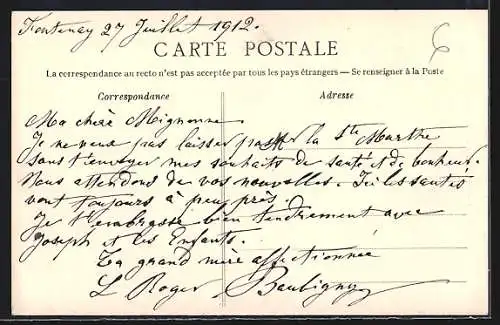 Fontenay 27 Juillet 1912.
CARTE POSTALE
6
La correspondance au recto n'est pas acceptée par tous les pays étrangers — Se renseigner à la Poste
Correspondance
Adresse
Ma chère Mignonne
Je ne veux pas laisser passer la Ste Marthe
sans t'envoyer mes souhaits de santé et de bonheur.
Nous attendons de vos nouvelles. Ici les santés
vont toujours à peu près.
Je t'embrasse bien tendrement avec
Joseph et les Enfants.
Ta grand mère affectionnée
L Roger Baubigny